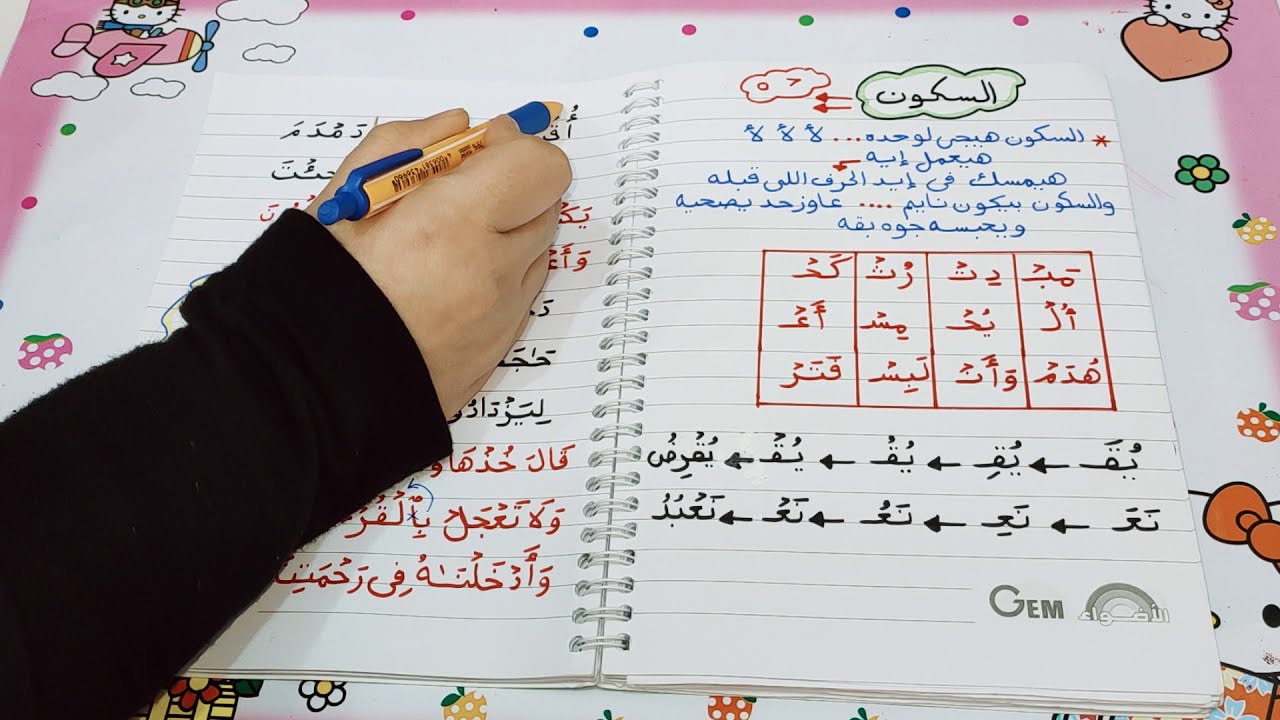 السكون
* السكون هييجى لوحده ... لأ لأ لأ
هيعمل إيه
هيمسك فى إيد الحرف اللى قبله
والسكون بيكون نايم .... عاوز حد يصحيه
ويحبسه جوه بقه
مَبۡ دِثۡ رُثۡ كَخۡ
أُلۡ يُخۡ مِسۡ أَعۡ
هُدَمۡ وَأَنۡ لَبِسۡ فَتَرۡ
يُقَ ← يُقِ ← يُقُ ← يُقۡ ← يُقۡرِضُ
نَعَ ← نَعِ ← نَعُ ← نَعۡ ← نَعۡبُدُ
GEM الأضواء
دَمۡدَمَ
جِئۡتَ
قَالَ خُذۡهَا
وَلَا تَعۡجَلۡ بِٱلۡقُرۡ
وَأَدۡخَلۡنَـٰهُ فِى رَحۡمَتِنَا